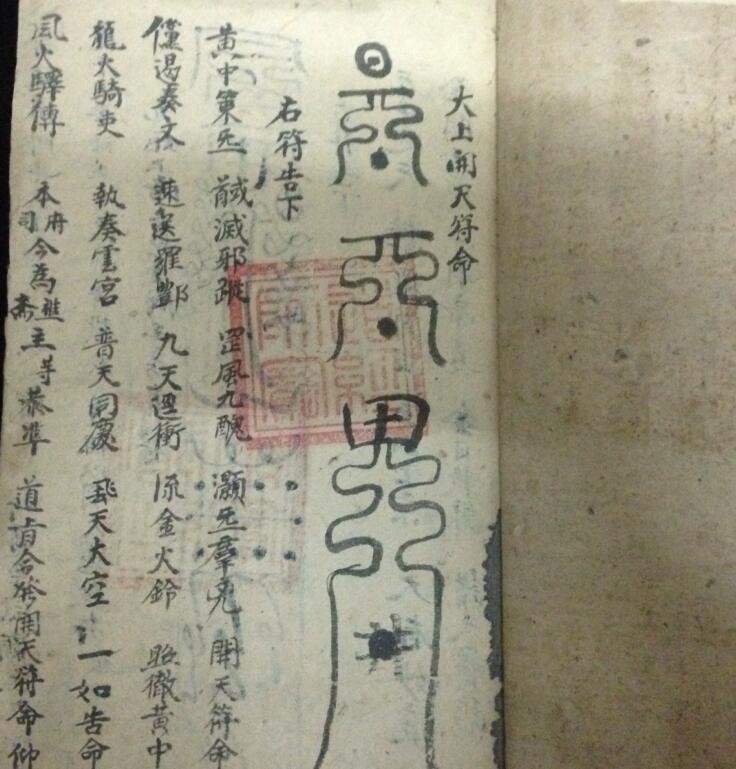 大上開天符命
右符告下
黄中第炁 馘滅邪蹤 罡風九醜 灝炁羣兇 開天符命
僅遏奏文 速送羅酆 九天迅衝 流金火鈴 照徹黄中
龍火騎吏 執奏雲宮 普天同慶 飛天大空 一如告命
風火驛傳 本府司今為進齋主等恭準 道旨合發開天符命仰